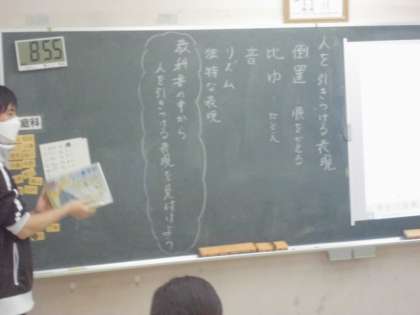 人を引きつける表現
倒置 順をかえる
比ゆ たとえ
音
リズム
独特な表現
教科書の中から
人を引きつける表現を見付けよう
8:55